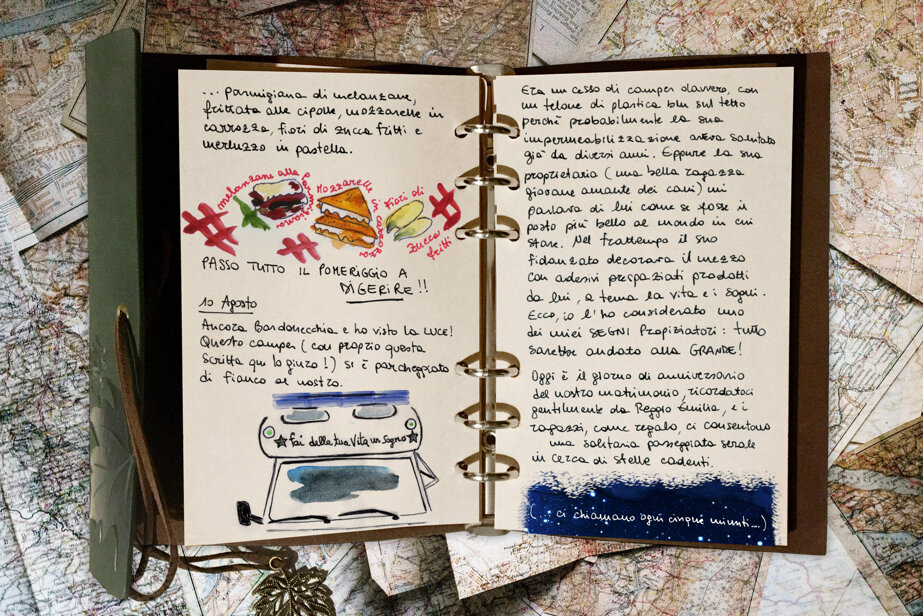 ... parmigiana di melanzane,
frittata alle cipolle, mozzarelle in
carrozza, fiori di zucca fritti e
merluzzo in pastella.
melanzane alla parmigiana
Mozzarelle in carrozza
Fiori di
zucca
fritti
PASSO TUTTO IL POMERIGGIO A
DIGERIRE!!
10 Agosto
Ancora Bardonecchia e ho visto la LUCE!
Questo camper (con proprio questa
scritta qui lo giuro!) si è parcheggiato
di fianco al nostro.
fai della tua Vita un Sogno
Era un cesso di camper davvero, con
un telone di plastica blu sul tetto
perché probabilmente la sua
impermeabilizzazione aveva salutato
già da diversi anni. Eppure la sua
proprietaria (una bella ragazza
giovane amante dei cani) mi
parlava di lui come se fosse il
posto più bello al mondo in cui
stare. Nel frattempo il suo
fidanzato decorava il mezzo
con adesivi prespaziati prodotti
da lui, a tema la vita e i sogni.
Ecco, io l'ho considerato uno
dei miei SEGNI Propiziatori: tutto
sarebbe andato alla GRANDE!
Oggi è il giorno di anniversario
del nostro matrimonio, ricordatoci
gentilmente da Reggio Emilia, e i
ragazzi, come regalo, ci consentono
una solitaria passeggiata serale
in cerca di stelle cadenti.
(... ci chiamano ogni cinque minuti...)